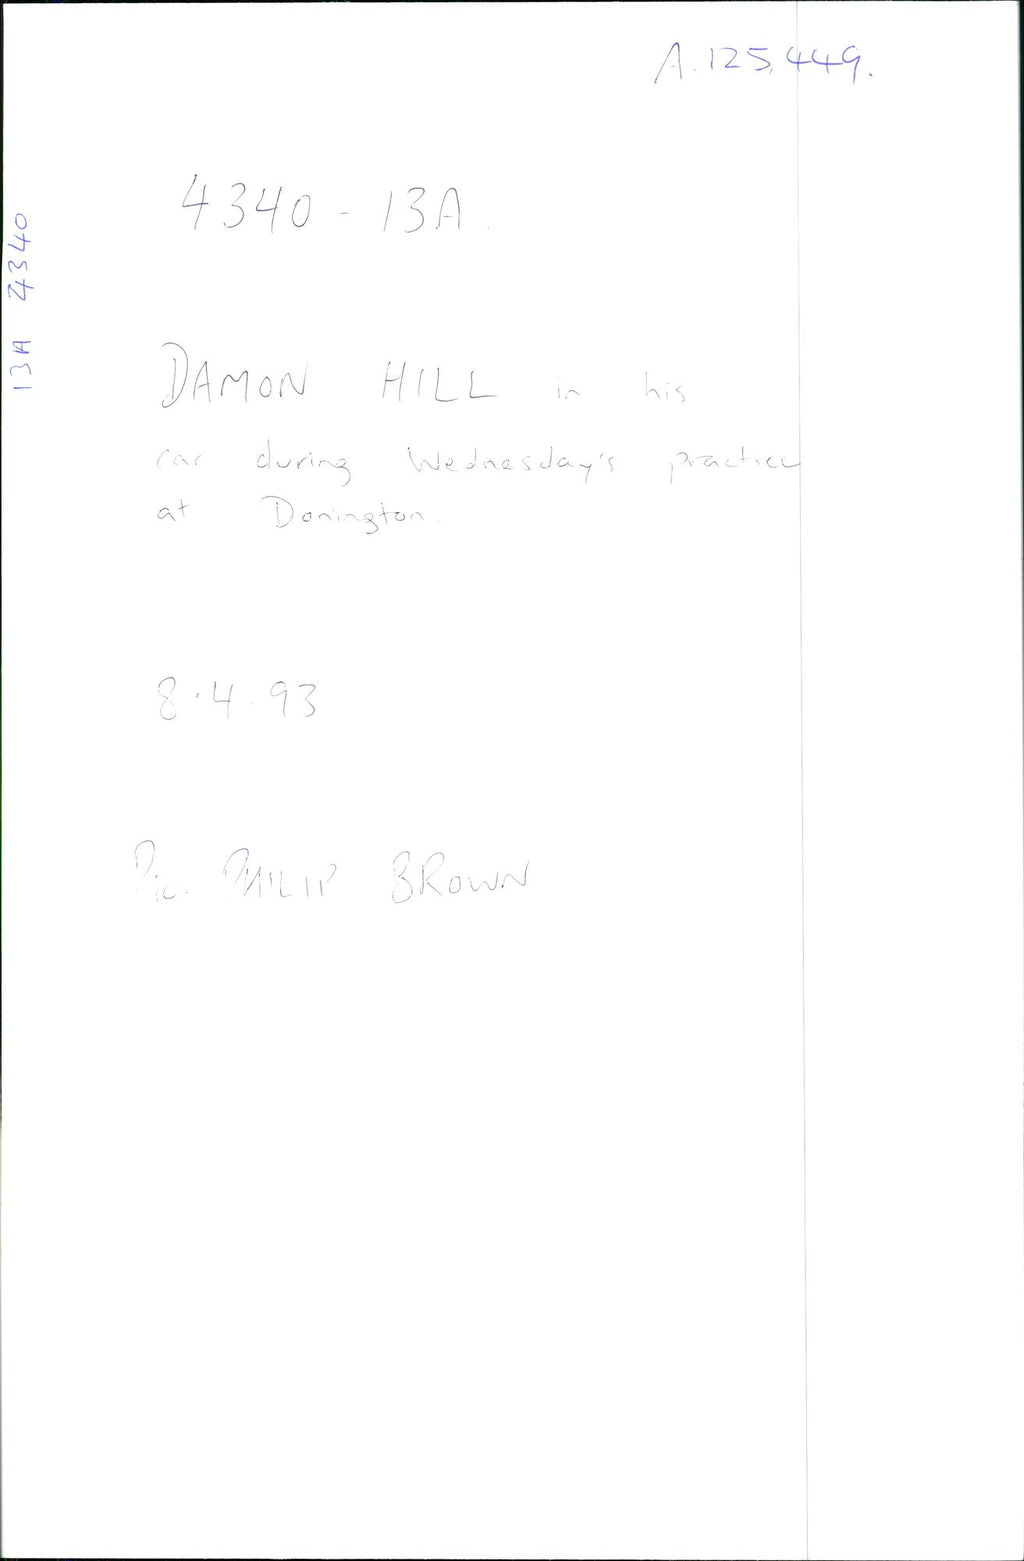 A.125,449.
4340 - 13A.
13A 4340
DAMON HILL in his
car during Wednesday's practice
at Donington.
8.4.93
Pic. PHILIP BROWN